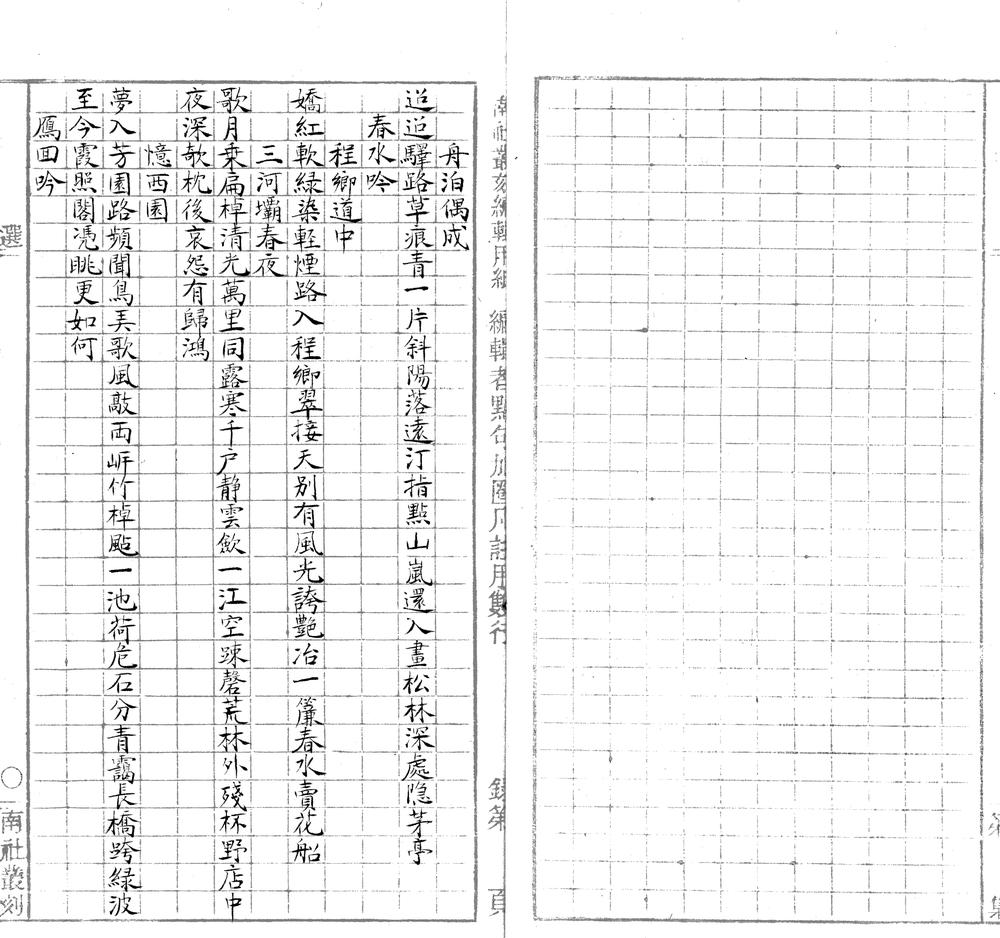 南社叢刻編輯用紙 編輯者點句加圈凡註用雙行 錄第 頁
舟泊偶成
迢迢驛路草痕青一片斜陽落遠汀指點山嵐還入畫松林深處隐茅亭
春水吟
程鄉道中
嬌紅軟綠染輕煙路入程鄉翠接天別有風光誇艷冶一簾春水賣花船
三河壩春夜
歌月乗扁棹清光萬里同露寒千戶靜雲斂一江空踈磬荒林外殘杯野店中
夜深欹枕後哀怨有歸鴻
憶西園
夢入芳園路頻聞鳥弄歌風敲両岍竹棹颭一池荷危石分青靄長橋跨綠波
至今霞照閣凴眺更如何
鴈回吟
選 〇南社叢刻